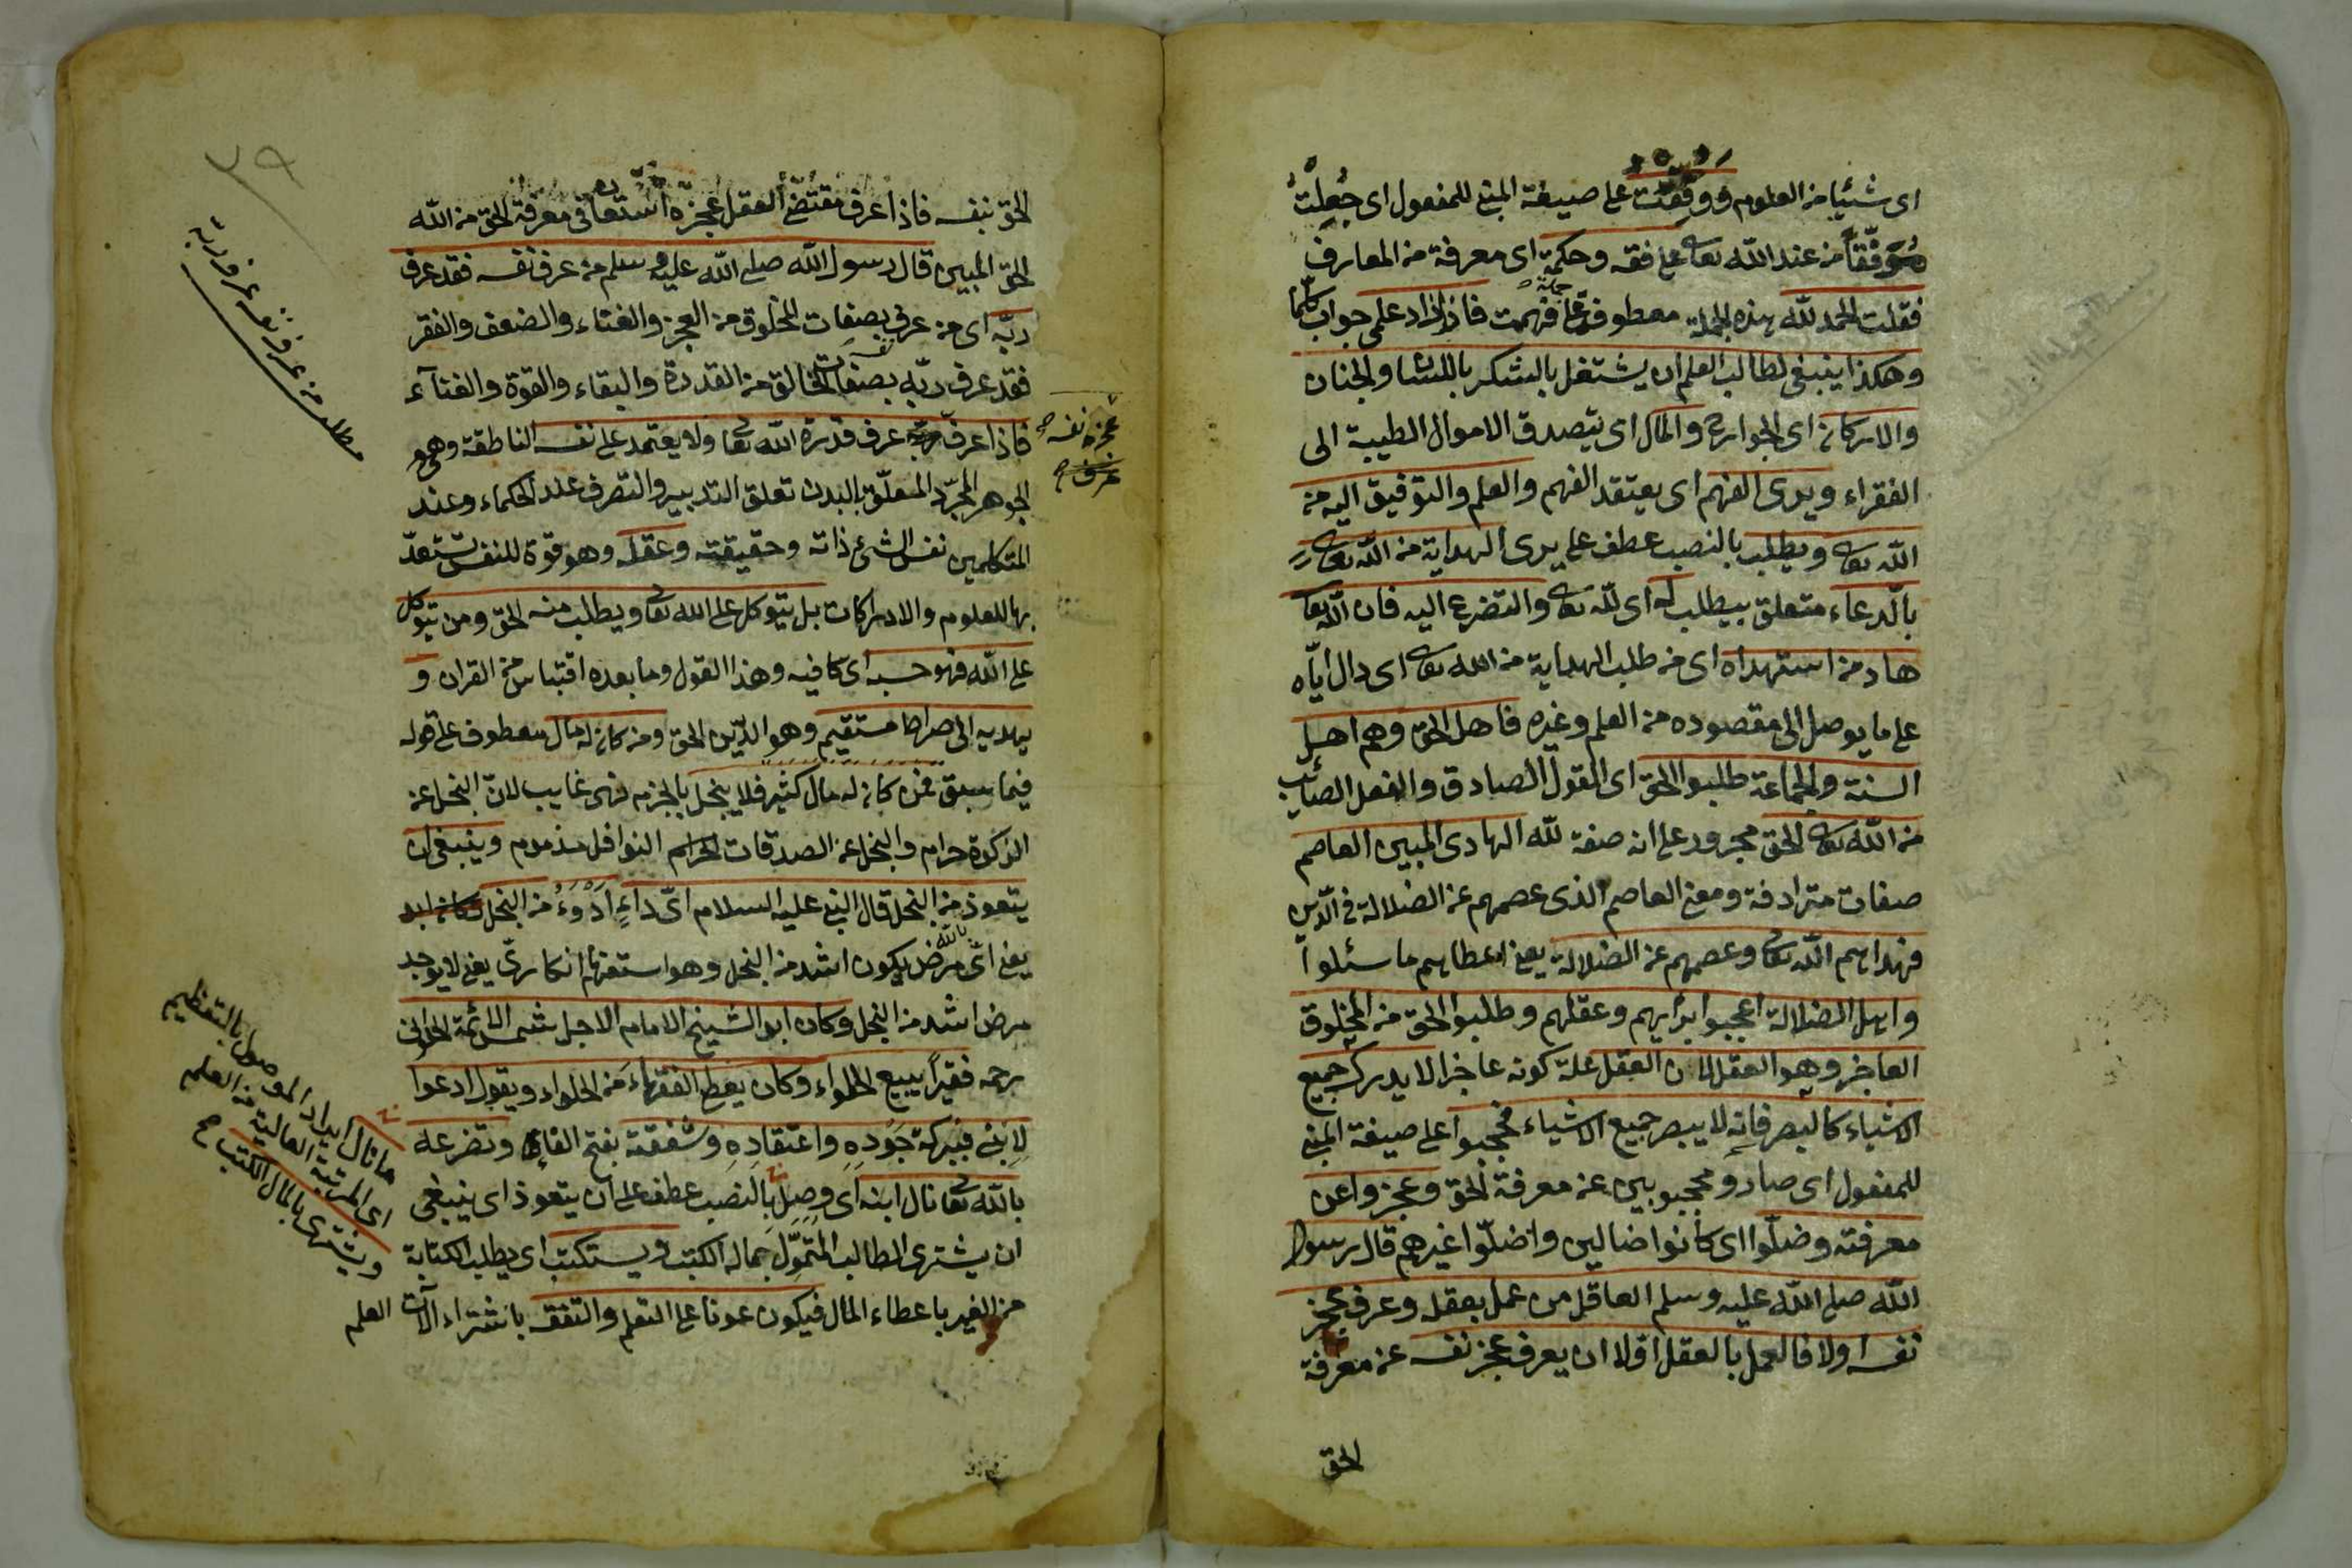 اى شيئا من العلوم ووفقت على صيغة المبنى للمفعول اى جعلت
موفقا من عند الله تعالى على فقه وحكمة اى معرفة من المعارف
فقلت الحمد لله هذه الجملة معطوفة على جملة فهمت فازداد علمى جواب كلما
وهكذا ينبغى لطالب العلم ان يشتغل بالشكر باللسان والجنان
والاركان اى الجوارح والمال اى يتصدق الاموال الطيبة الى
الفقراء ويرى الفهم اى يعتقد الفهم والعلم والتوفيق اليه من
الله تعالى ويطلب بالنصب عطف على يرى الهداية من الله تعالى
بالدعاء متعلق بيطلب له اى لله تعالى والتضرع اليه فان الله تعالى
هاد من استهداه اى من طلب الهداية من الله تعالى اى دال اياه
على ما يوصل الى مقصوده من العلم وغيره فاهل الحق وهم اهل
السنة والجماعة طلبوا الحق اى القول الصادق والفعل الصائب
من الله تعالى الحق مجرور على انه صفة لله الهادى المبين العاصم
صفات مترادفة ومعنى العاصم الذى عصمهم عن الضلالة فى الدين
فهداهم الله تعالى وعصمهم عن الضلالة يعنى اعطاهم ما سئلوا
واهل الضلالة اعجبوا برأيهم وعقلهم وطلبوا الحق من المخلوق
العاجز وهو العقل لان العقل علة كونه عاجزا لا يدرك جميع
الاشياء كالبصر فانه لا يبصر جميع الاشياء فحجبوا على صيغة المبنى
للمفعول اى صاروا محجوبين عن معرفة الحق وعجزوا عن
معرفته وضلوا اى كانوا ضالين واضلوا غيرهم قال رسول
الله صلى الله عليه وسلم العاقل من عمل بعقله وعرف عجز
نفسه اولا فالعمل بالعقل اولا ان يعرف عجز نفسه عن معرفة
الحق
٣٩
الحق بنفسه فاذا عرف مقتضى العقل عجزه استعان فى معرفة الحق من الله
الحق المبين قال رسول الله صلى الله عليه وسلم من عرف نفسه فقد عرف
ربه اى من عرف نفسه بصفات المخلوق من العجز والفناء والضعف والفقر
فقد عرف ربه بصفات الخالق من القدرة والبقاء والقوة والغناء
فاذا عرف عجز نفسه عرف قدرة الله تعالى ولا يعتمد على نفسه الناطقة وهى
الجوهر المجرد المتعلق بالبدن تعلق التدبير والتصرف عند الحكماء وعند
المتكلمين نفس الشئ ذاته وحقيقته وعقله وهو قوة للنفس تستعد
بها للعلوم والادراكات بل يتوكل على الله تعالى ويطلب منه الحق ومن يتوكل
على الله فهو حسبه اى كافيه وهذا القول وما بعده اقتباس من القران و
يهديه الى صراط مستقيم وهو الدين الحق ومن كان له مال معطوف على قوله
فيما سبق فمن كان له مال كثير فلا يبخل بالجزم نهى غايب لان البخل عن
الزكوة حرام والبخل عن الصدقات النوافل مذموم وينبغى ان
يتعوذ من البخل قال النبى عليه السلام اى داء ادوء من البخل
يعنى اى مرض يكون اشد من البخل وهو استفهام انكارى يعنى لا يوجد
مرض اشد من البخل وكان ابو الشيخ الامام الاجل شمس الائمة الحلوانى
رحمه فقيرا يبيع الحلواء وكان يعطى الفقهاء من الحلواء ويقول ادعوا
لابنى فببركة جوده واعتقاده وشفقته بفتح الفاء وتضرعه
بالله تعالى نال ابنه اى وصل بالنصب عطف على ان يتعوذ اى ينبغى
ان يشترى الطالب المتمول بماله الكتب ويستكتب اى يطلب الكتابة
من الغير باعطاء المال فيكون عونا على التعلم والتفقه باشتراء آلات العلم
مطلب من عرف نفسه عرف ربه
ما نال ايراد الموصول بالتعظيم
اى المرتبة العالية من العلم
ويشترى بالمال الكتب